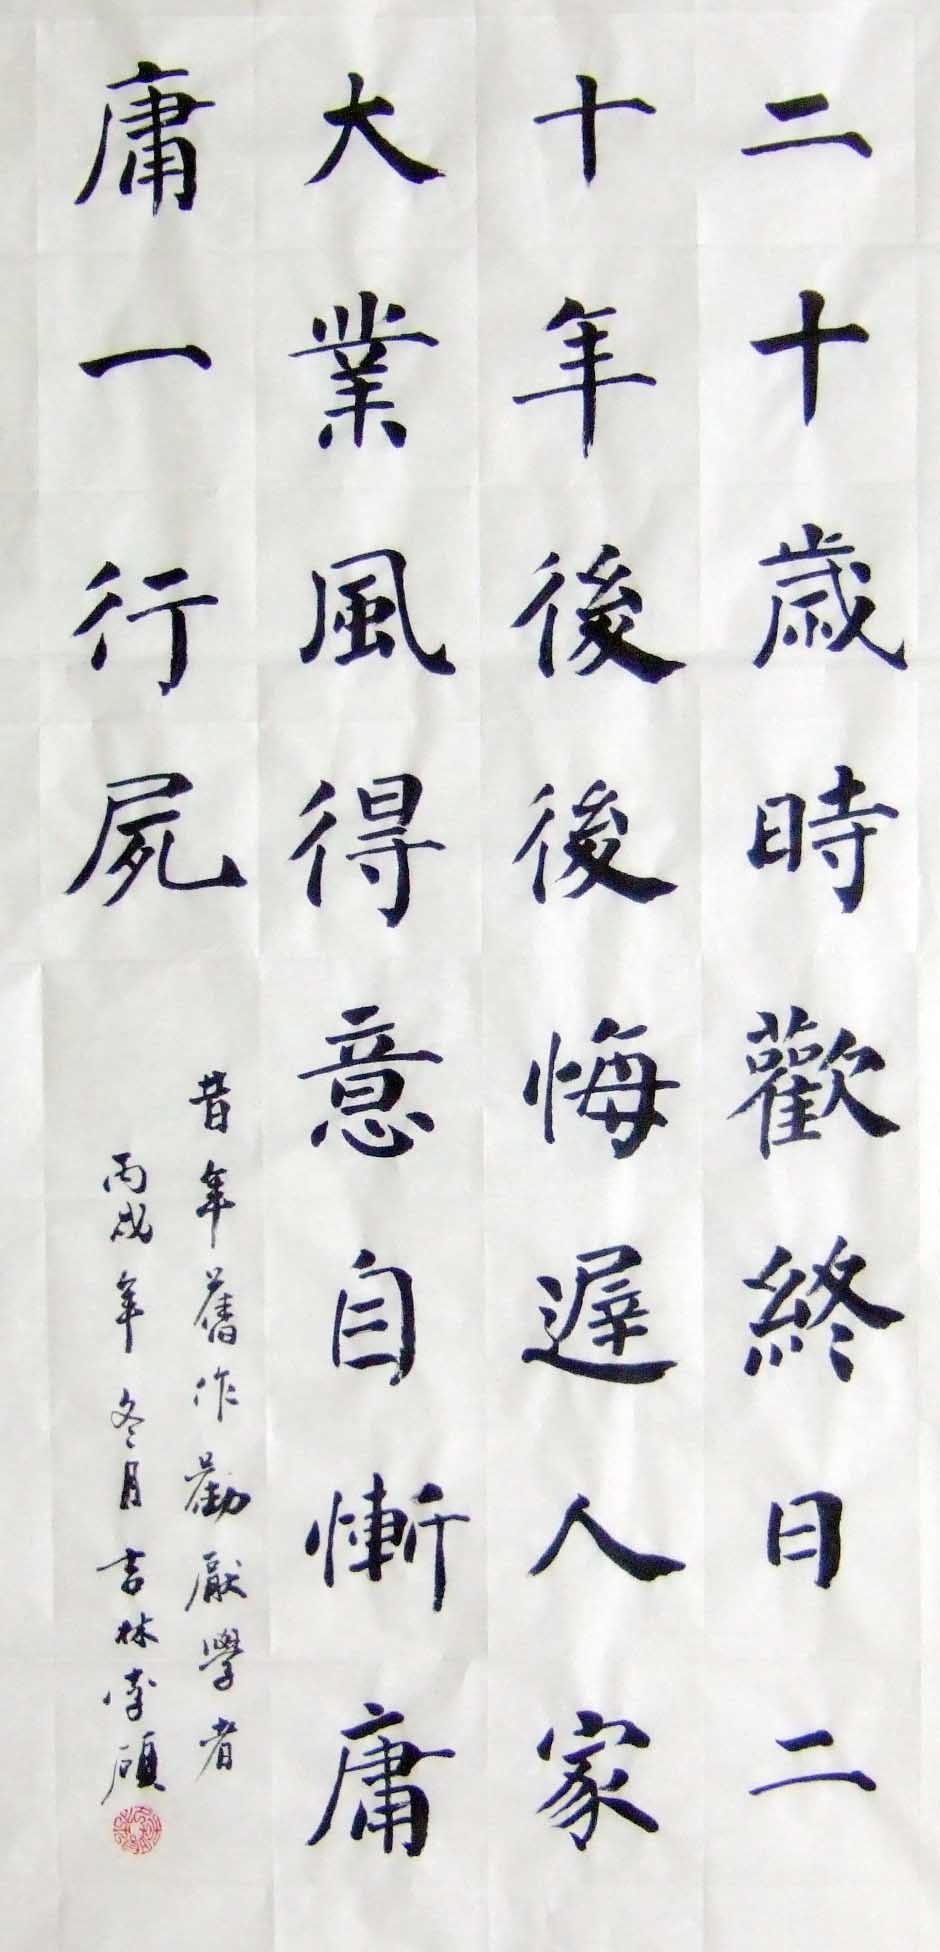 二十歲時歡終日二
十年後後悔遲人家
大業風得意自慚庸
庸一行屍
昔年舊作勸厭學者
丙戌年冬月吉林李碩